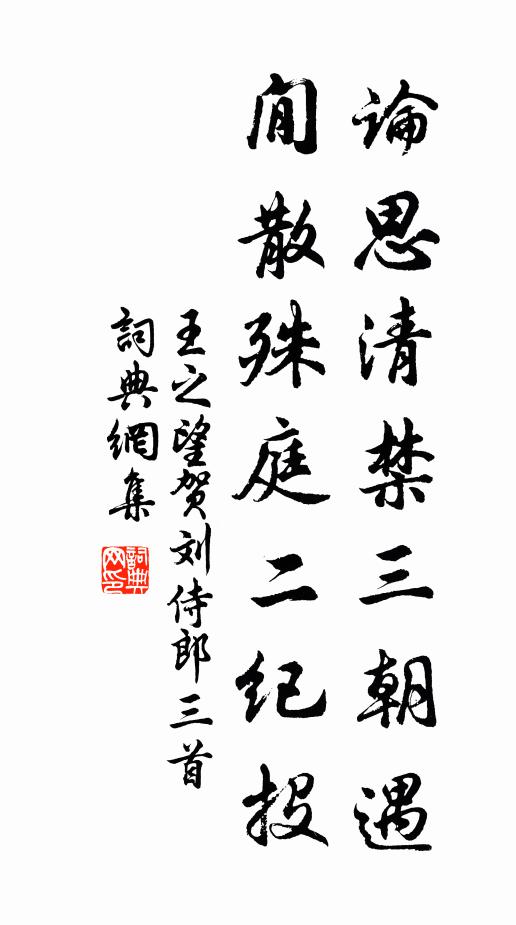 論思清禁三朝遇
閒散殊庭二紀投
王之望贺刘侍郎三首
詞典網集
詞典网印